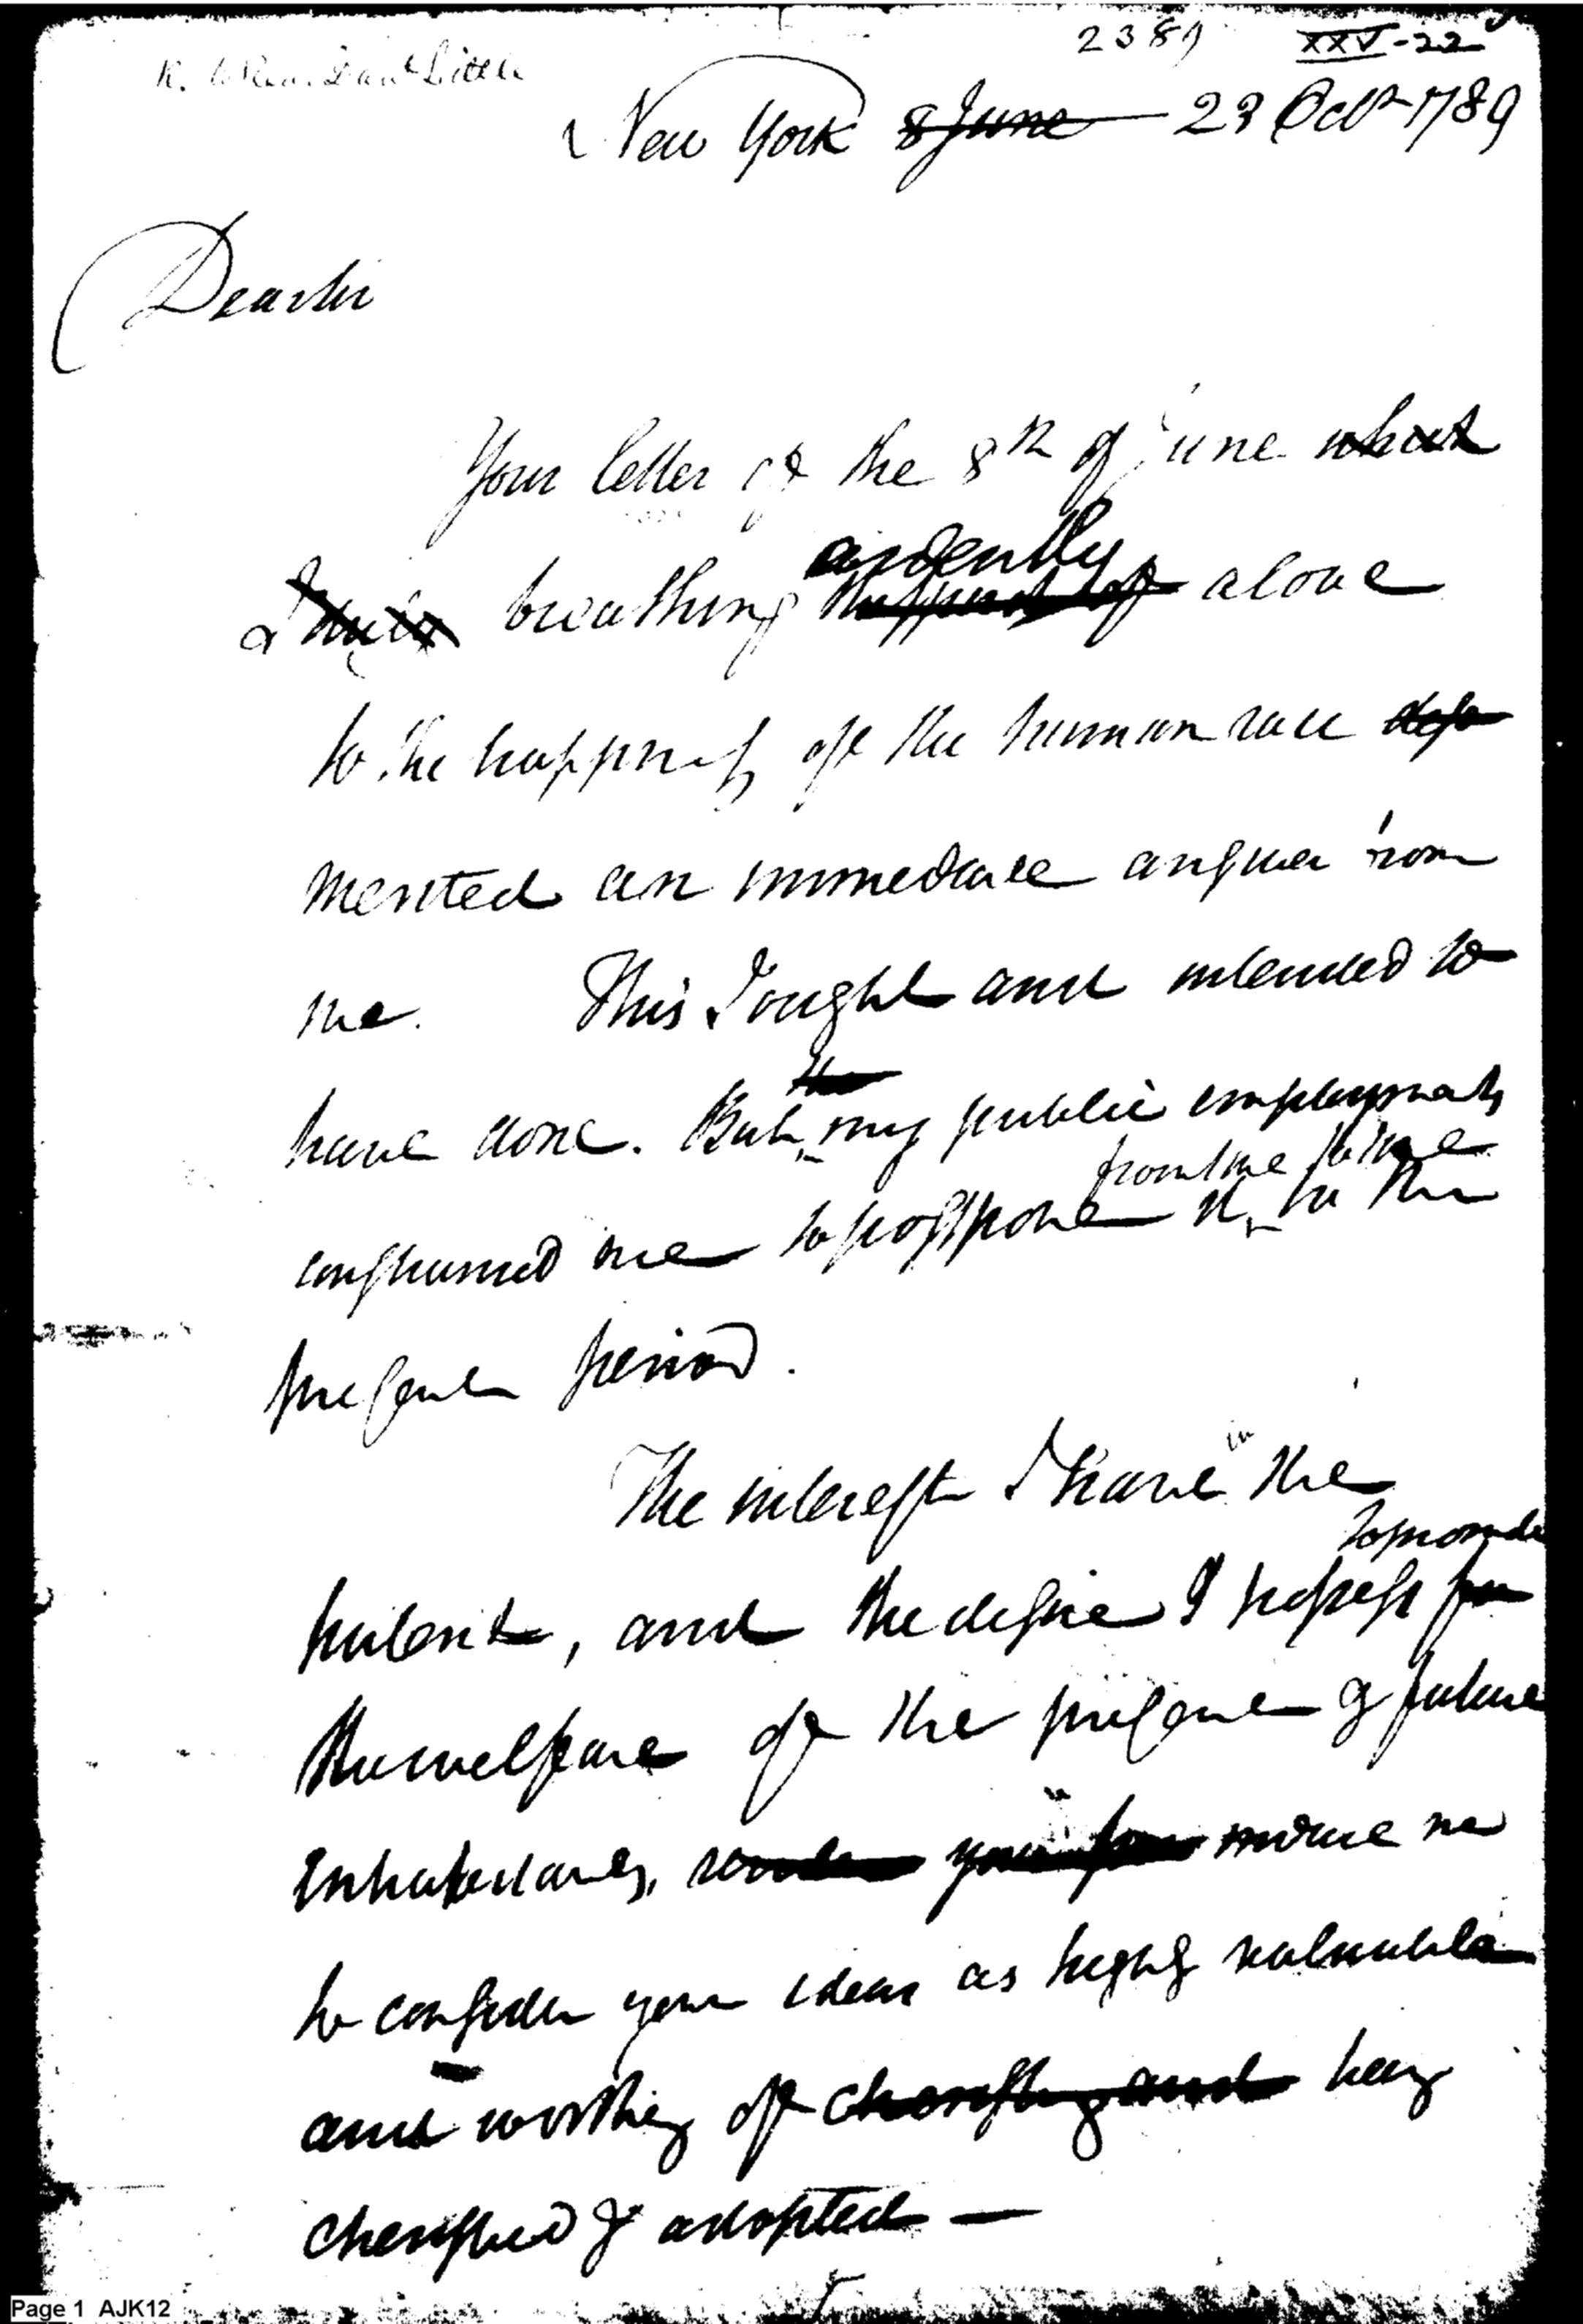 2389 XXV-22
New York 8 June 23 Octr 1789
Dear sir
Your letter of the 8th of June
ardently
breathing alone
to the happiness of the human race
merited an immediate answer from
me. This I ought and intended to
the
have done. But my public employments
from time to time
constrained me to postpone it to the
present period.
in
The interest I have the
to promote
patent, and the desire I possess for
the welfare of the present & future
Inhabitants, induce me
to consider your ideas as highly valuable
and worthy of cherishing and being
cherished & adopted —
Page 1 AJK12